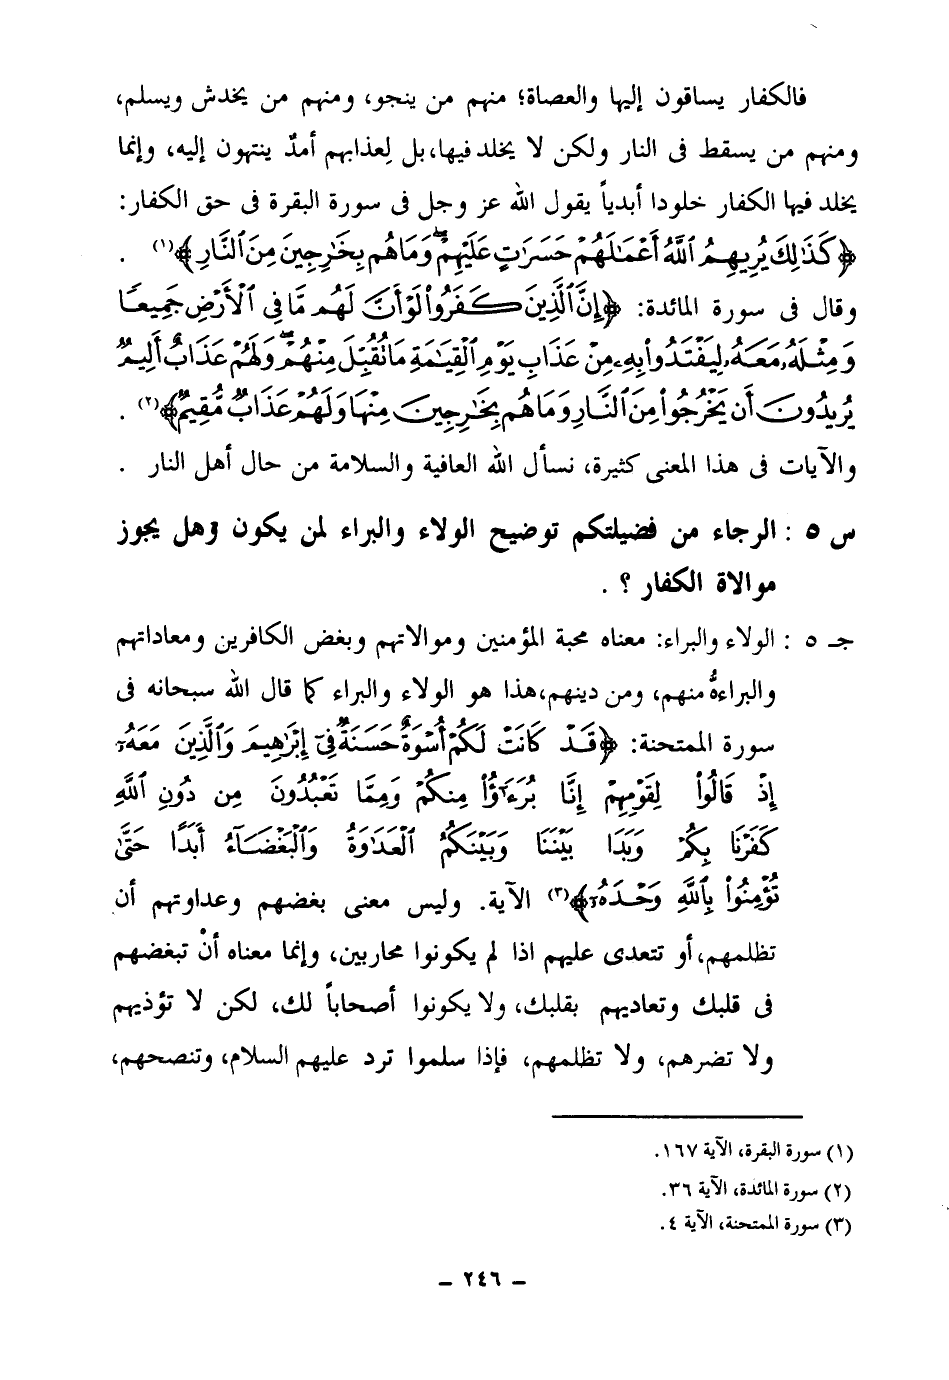 فالكفار يساقون إليها والعصاة؛ منهم من ينجو، ومنهم من يخدش ويسلم،
ومنهم من يسقط فى النار ولكن لا يخلد فيها، بل لِعذابهم أمدٌ ينتهون إليه، وإنما
يخلد فيها الكفار خلودا أبدياً يقول الله عز وجل فى سورة البقرة فى حق الكفار:
﴿كَذَٰلِكَ يُرِيهِمُ ٱللَّهُ أَعْمَٰلَهُمْ حَسَرَٰتٍ عَلَيْهِمْۖ وَمَا هُم بِخَٰرِجِينَ مِنَ ٱلنَّارِ﴾(١) .
وقال فى سورة المائدة: ﴿إِنَّ ٱلَّذِينَ كَفَرُوا۟ لَوْ أَنَّ لَهُم مَّا فِى ٱلْأَرْضِ جَمِيعًا
وَمِثْلَهُۥ مَعَهُۥ لِيَفْتَدُوا۟ بِهِۦ مِنْ عَذَابِ يَوْمِ ٱلْقِيَٰمَةِ مَا تُقُبِّلَ مِنْهُمْۖ وَلَهُمْ عَذَابٌ أَلِيمٌ
يُرِيدُونَ أَن يَخْرُجُوا۟ مِنَ ٱلنَّارِ وَمَا هُم بِخَٰرِجِينَ مِنْهَا وَلَهُمْ عَذَابٌ مُّقِيمٌ﴾(٢) .
والآيات فى هذا المعنى كثيرة، نسأل الله العافية والسلامة من حال أهل النار .
س ٥ : الرجاء من فضيلتكم توضيح الولاء والبراء لمن يكون وهل يجوز
موالاة الكفار ؟ .
جـ ٥ : الولاء والبراء: معناه محبة المؤمنين وموالاتهم وبغض الكافرين ومعاداتهم
والبراءةُ منهم، ومن دينهم، هذا هو الولاء والبراء كما قال الله سبحانه فى
سورة الممتحنة: ﴿قَدْ كَانَتْ لَكُمْ أُسْوَةٌ حَسَنَةٌ فِىٓ إِبْرَٰهِيمَ وَٱلَّذِينَ مَعَهُۥٓ
إِذْ قَالُوا۟ لِقَوْمِهِمْ إِنَّا بُرَءَٰٓؤُا۟ مِنكُمْ وَمِمَّا تَعْبُدُونَ مِن دُونِ ٱللَّهِ
كَفَرْنَا بِكُمْ وَبَدَا بَيْنَنَا وَبَيْنَكُمُ ٱلْعَدَٰوَةُ وَٱلْبَغْضَآءُ أَبَدًا حَتَّىٰ
تُؤْمِنُوا۟ بِٱللَّهِ وَحْدَهُۥٓ﴾(٣) الآية. وليس معنى بغضهم وعداوتهم أن
تظلمهم، أو تتعدى عليهم اذا لم يكونوا محاربين، وإنما معناه أنْ تبغضهم
فى قلبك وتعاديهم بقلبك، ولا يكونوا أصحاباً لك، لكن لا تؤذيهم
ولا تضرهم، ولا تظلمهم، فإذا سلموا ترد عليهم السلام، وتنصحهم،
(١) سورة البقرة، الآية ١٦٧.
(٢) سورة المائدة، الآية ٣٦.
(٣) سورة الممتحنة، الآية ٤.
- ٢٤٦ -